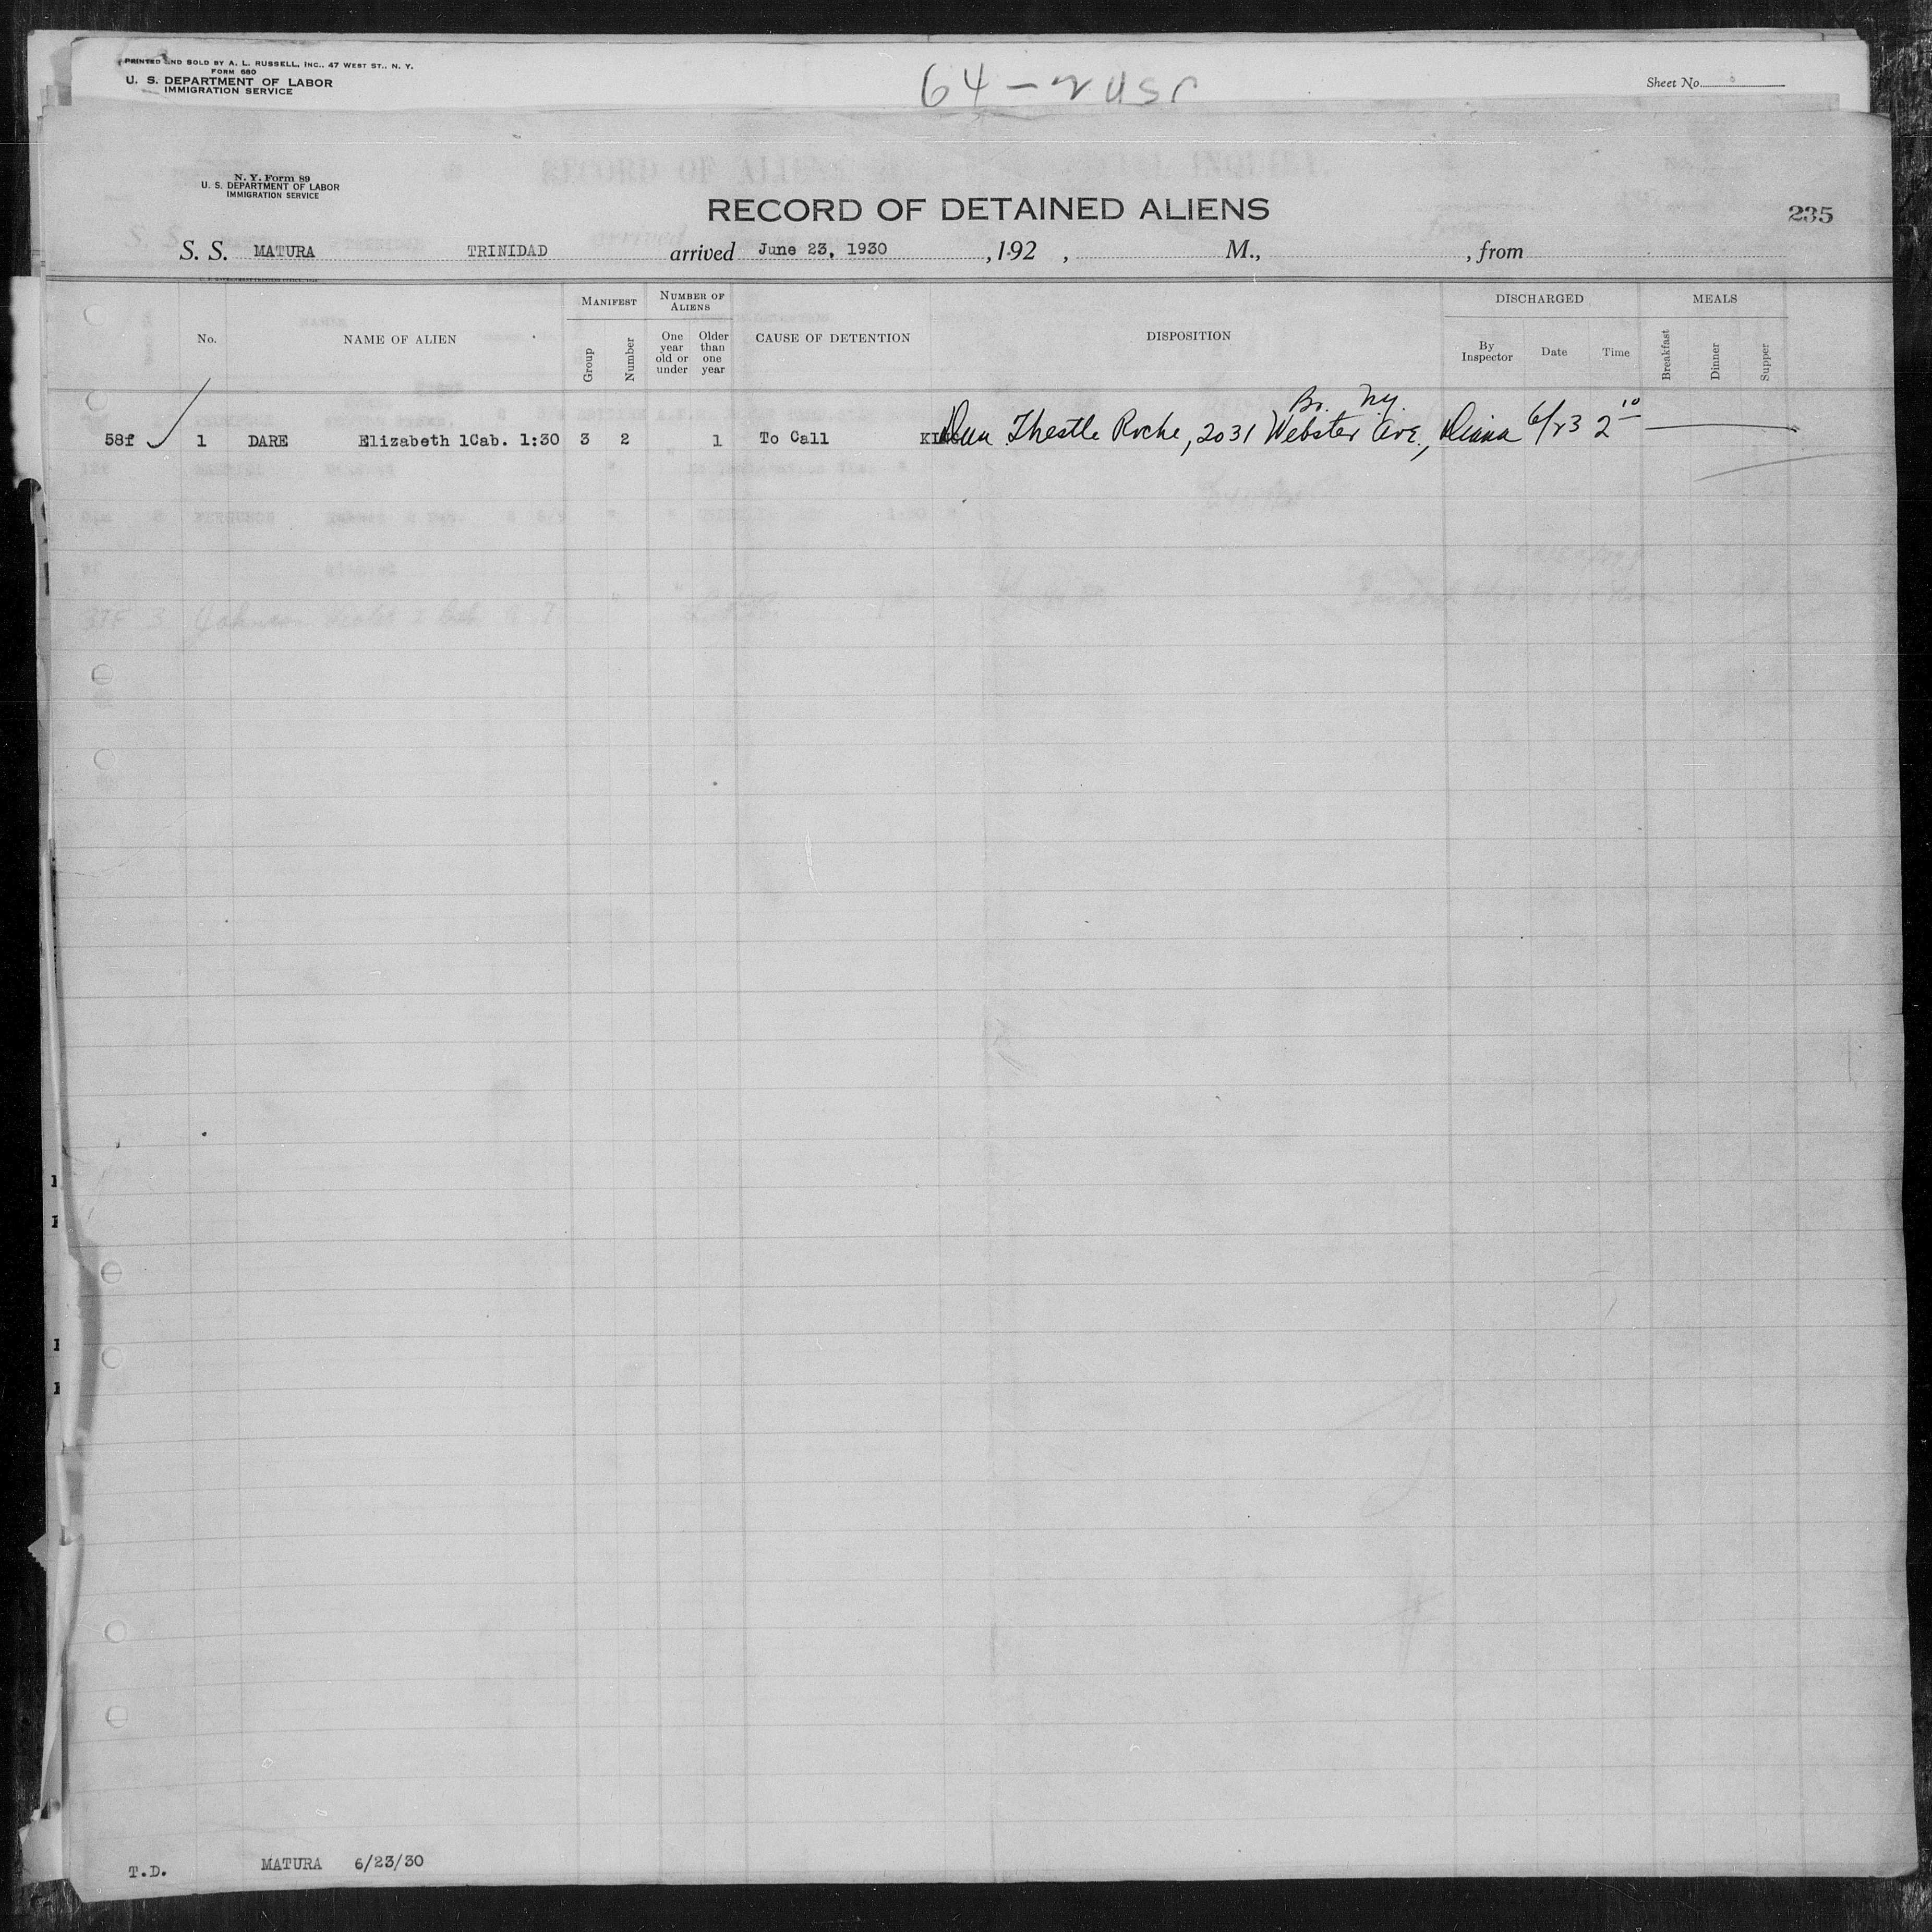 PRINTED AND SOLD BY A. L. RUSSELL, INC., 47 WEST ST., N. Y.
FORM 680
U. S. DEPARTMENT OF LABOR
IMMIGRATION SERVICE
64 -
Sheet No.
N. Y. Form 89
U. S. DEPARTMENT OF LABOR
IMMIGRATION SERVICE
RECORD OF DETAINED ALIENS
235
S. S. MATURA TRINIDAD arrived June 23, 1930 , 192 , M., , from
No. NAME OF ALIEN MANIFEST Group Number NUMBER OF ALIENS One year old or under Older than one year CAUSE OF DETENTION DISPOSITION DISCHARGED By Inspector Date Time MEALS Breakfast Dinner Supper
Bx. N.Y.
58f 1 DARE Elizabeth 1Cab. 1:30 3 2 1 To Call Thestle Roche, 2031 Webster Ave., Diana 6/23 2 10
T.D. MATURA 6/23/30